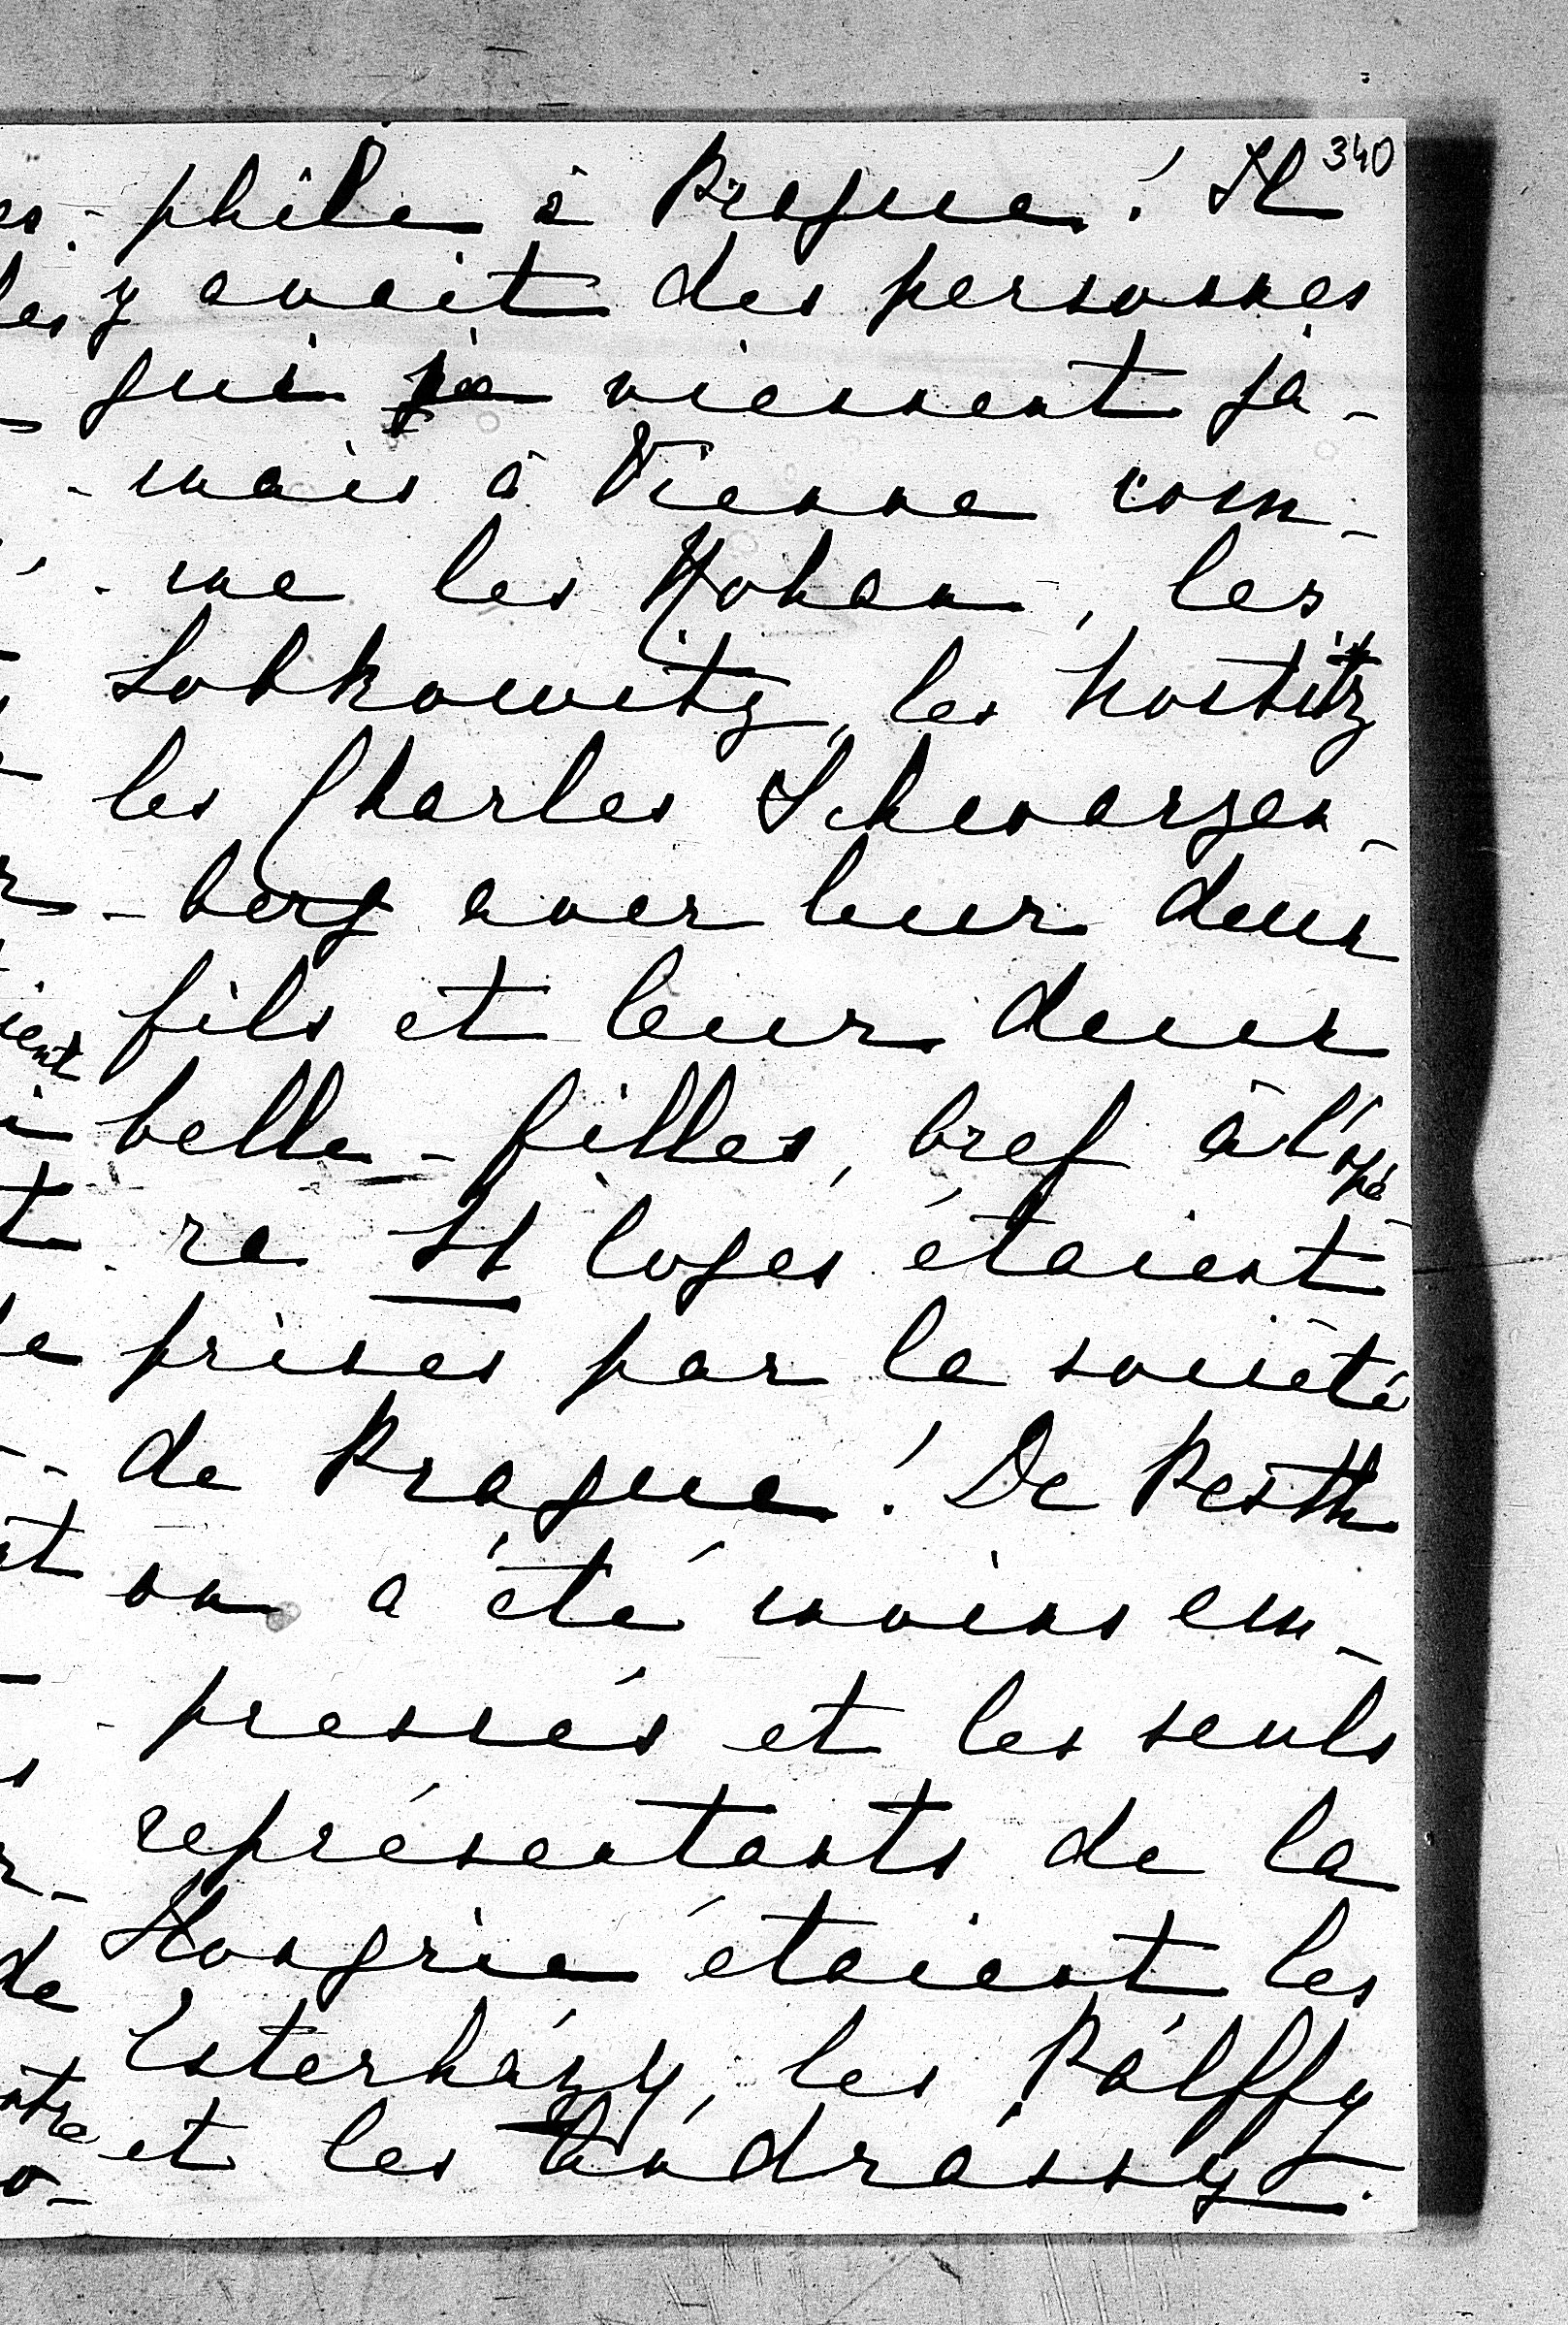 340
phile à Prague! Il
y avait des personnes
qui ne viennent ja-
-mais à Vienne com-
-me les Rohan, les
Lobkowitz, les Nostitz
les Charles Schwarzen-
-berg avec leur deux
fils et leur deux
belle-filles, bref à l'opé-
-ra 11 loges étaient
prises par la société
de Prague! De Pesth
on a été moins em-
-pressés et les seuls
représentants de la
Hongrie étaient les
Esterházy, les Pálffy
et les Andrássy.